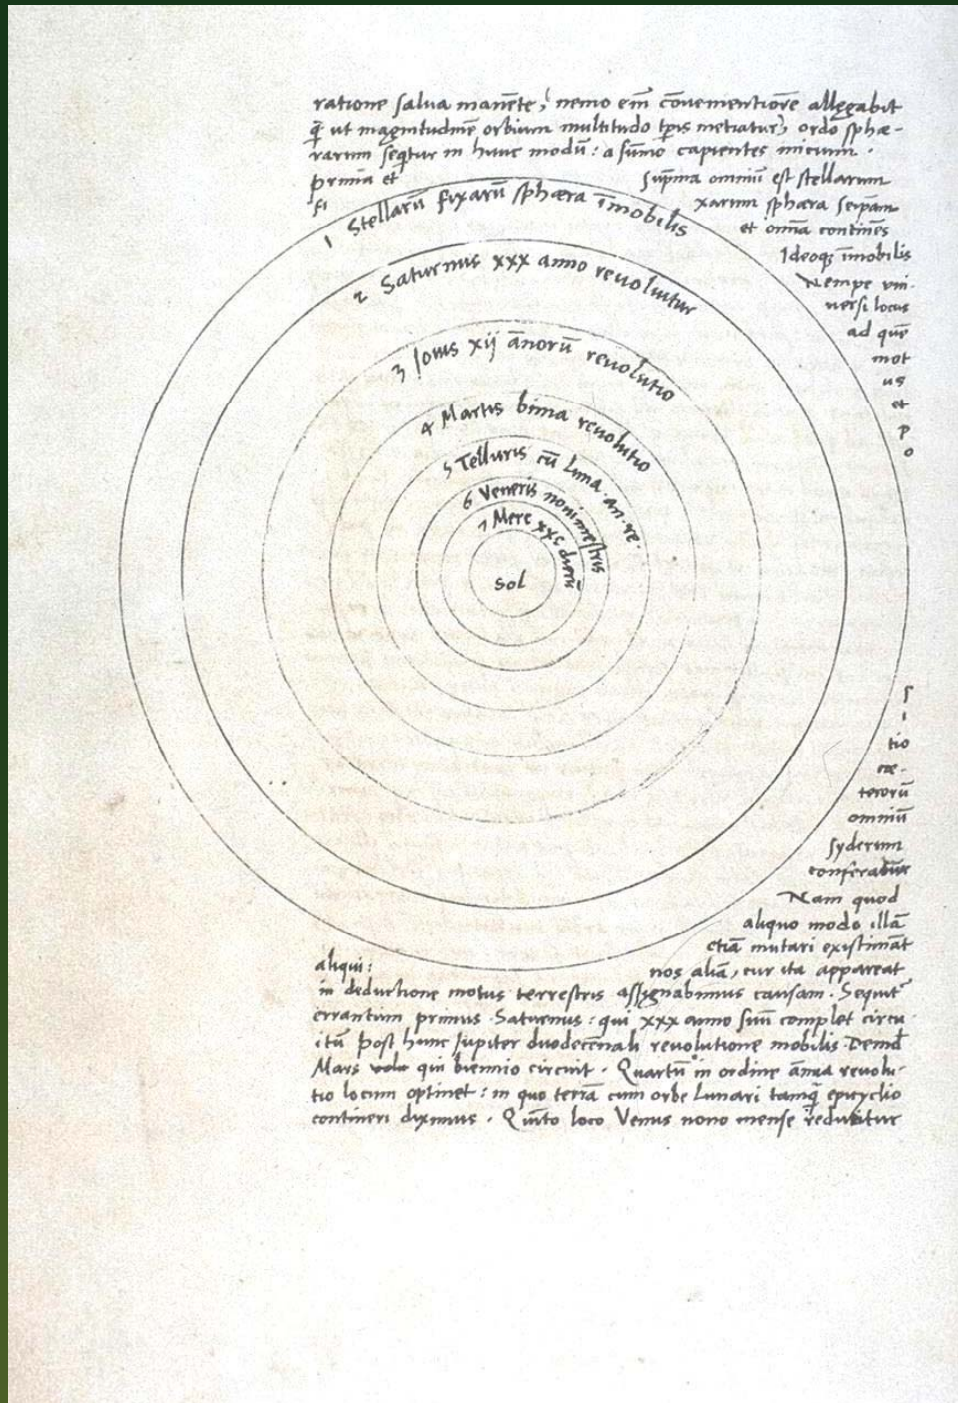 ratione salua manēte, nemo em̄ cōuenientiorē allegabit
q̄ ut magnitudinē orbium multitudo tp̄is metiatur, ordo sphæ-
rarum seq̄tur in hunc modū: a sūmo capientes initium.
prima et suprema omniū est stellarum
fi xarum sphæra seipsam
et omnia continēs
Ideoq; īmobilis
Nempe vni-
uersi locus
ad quē
mot
us
et
p
o
1 Stellarū fixarū sphæra īmobilis
2 Saturnus xxx anno reuoluitur
3 Jouis xij ānorū reuolutio
4 Martis bima reuolutio
5 Telluris cū luna an. re.
6 Veneris nonimestris
7 Merc xxc dierū
Sol
s
i
tio
cæ-
terorū
omniū
syderum
conferatur
Nam quod
aliquo modo illā
etiā mutari existimāt
aliqui: nos aliā, cur ita appareat
in deductione motus terrestris assignabimus causam. Sequit̄
errantium primus Saturnus: qui xxx anno suū complet circu
itū post hunc Jupiter duodecēnali reuolutione mobilis. Deind̄
Mars qui biennio circuit. Quartū in ordine ānua reuolu-
tio locum optinet: in quo terrā cum orbe Lunari tamq̄ epicyclio
contineri diximus. Quīto loco Venus nono mense reducitur